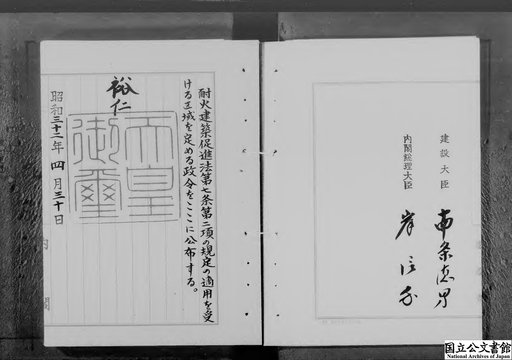 耐火建築促進法第七条第二項の規定の適用を受
ける区域を定める政令をここに公布する。
裕仁
天皇
御璽
昭和三十二年四月三十日
内閣
建設大臣
南条徳男
内閣総理大臣
岸信介
国立公文書館
National Archives of Japan